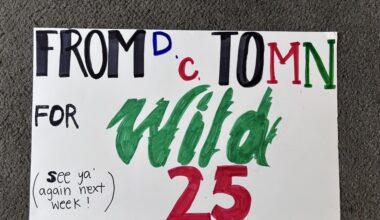 FROM D.C. TO MN
FOR
Wild
25
(See ya'
again next
week!)